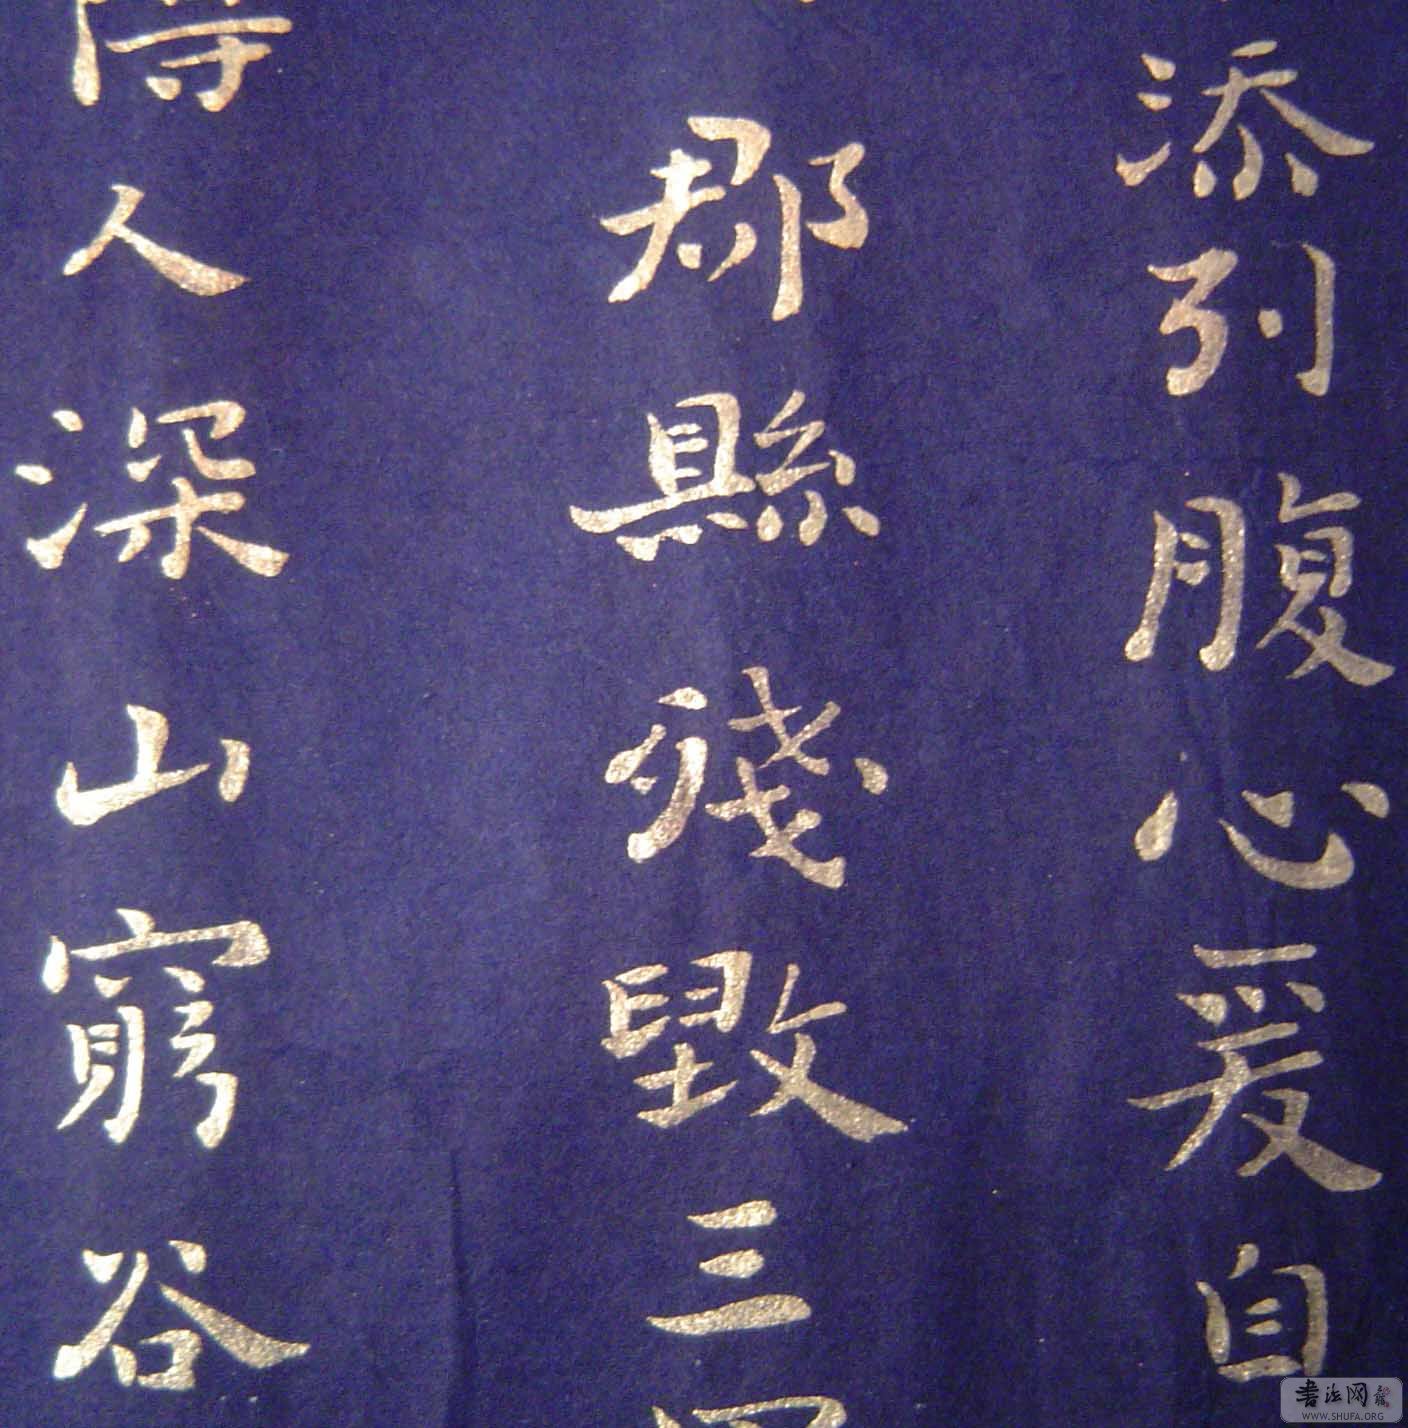 添列腹心爰自
郡縣殘毀三
得人深山窮谷
書法网
WWW.SHUFA.ORG